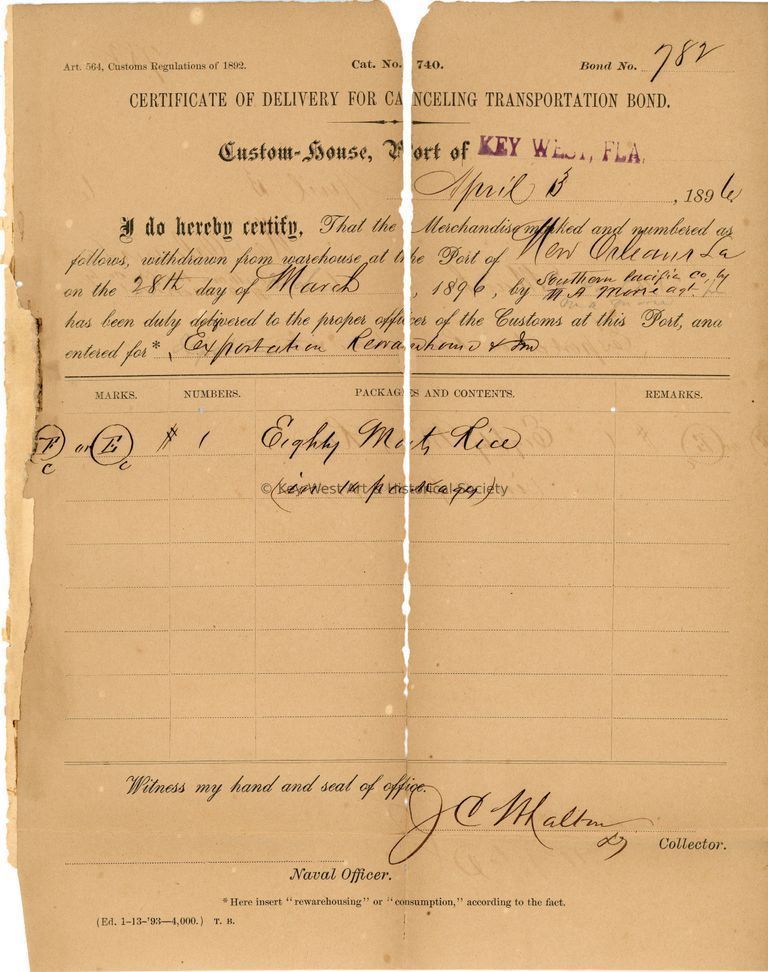 Art. 564, Customs Regulations of 1892. Cat. No. 740. Bond No. 782
CERTIFICATE OF DELIVERY FOR CANCELING TRANSPORTATION BOND.
Custom-House, Port of KEY WEST, FLA.
April 13, 1896
I do hereby certify, That the Merchandise marked and numbered as
follows, withdrawn from warehouse at the Port of New Orleans La
on the 28th day of March, 1896, by Southern Pacific Co, by
agt.
has been duly delivered to the proper officer of the Customs at this Port, and
entered for* Exportation
MARKS. NUMBERS. PACKAGES AND CONTENTS. REMARKS.
F C or E C # 1 Eighty Mats Rice
© Key West Art & Historical Society
Witness my hand and seal of office.
J C Whalton
Dy Collector.
Naval Officer.
*Here insert "rewarehousing" or "consumption," according to the fact.
(Ed. 1-13-'93—4,000.) T. B.